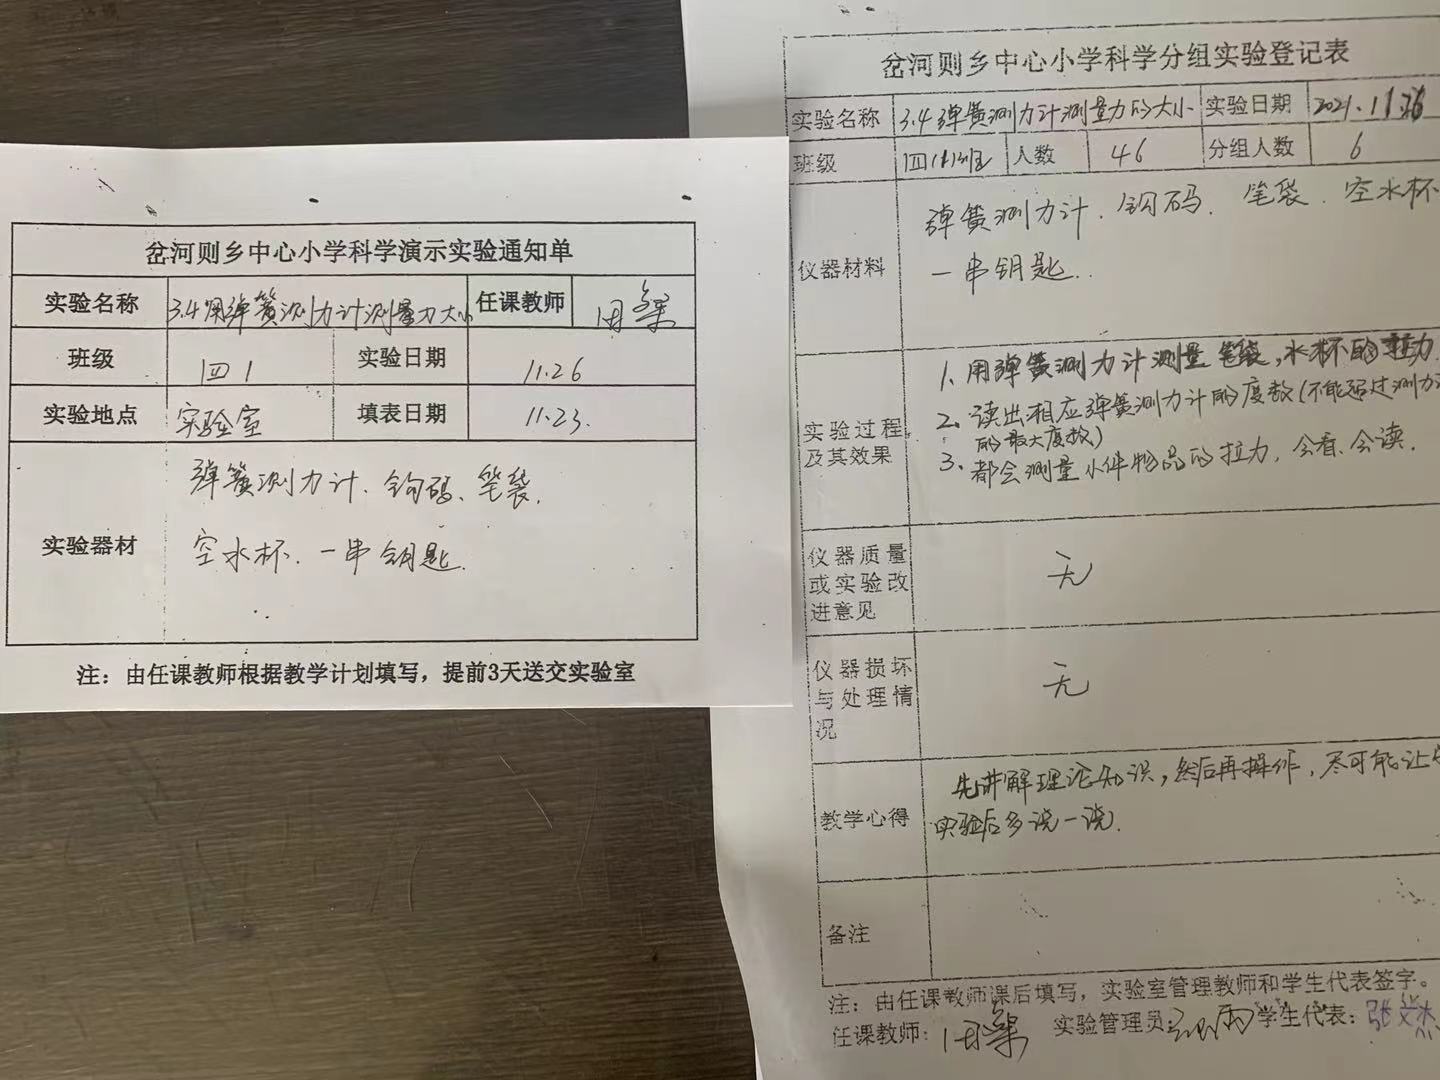 岔河则乡中心小学科学演示实验通知单
实验名称 3.4用弹簧测力计测量力大小 任课教师
班级 四1 实验日期 11.26
实验地点 实验室 填表日期 11.23.
实验器材
弹簧测力计、钩码、笔袋,
空水杯、一串钥匙.
注：由任课教师根据教学计划填写，提前3天送交实验室
岔河则乡中心小学科学分组实验登记表
实验名称 3.4弹簧测力计测量力的大小 实验日期 2021.11.26
班级 四(1)班 人数 46 分组人数 6
仪器材料
弹簧测力计、钩码、笔袋、空水杯
一串钥匙.
实验过程
及其效果
1、用弹簧测力计测量笔袋,水杯的拉力.
2、读出相应弹簧测力计的度数(不能超过测力计
的最大度数)
3、都会测量小件物品的拉力,会看、会读.
仪器质量
或实验改
进意见
无
仪器损坏
与处理情
况
无
教学心得
先讲解理论知识,然后再操作,尽可能让
实验后多说一说.
备注
注：由任课教师课后填写，实验室管理教师和学生代表签字。
任课教师： 实验管理员： 学生代表：张文杰